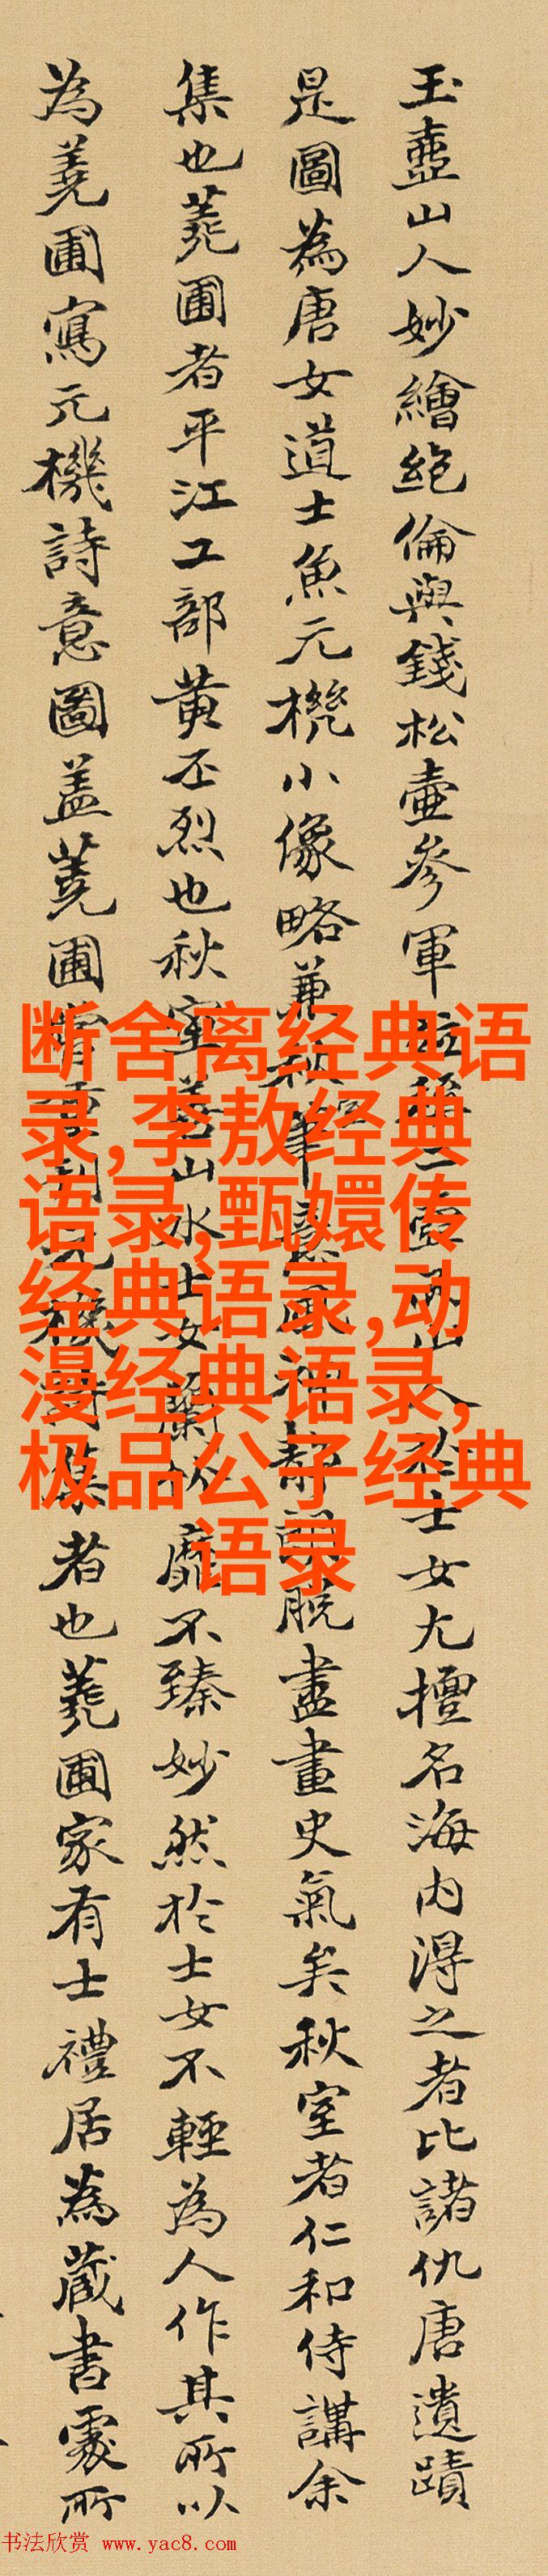 玉壺山人妙繪絶倫與錢松壺參軍壺山人於士女尤擅名海内得之者比諸仇唐遺蹟
是圖為唐女道士魚元機小像略兼秋筆意風神静脱盡畫史氣矣秋室者仁和侍講余
集也蕘圃者平江工部黄丕烈也秋室善山水士女蘭竹靡不臻妙然於士女不輕為人作其所以
為蕘圃寫元機詩意圖盖蕘圃嘗元機詩集者也蕘圃家有士禮居為藏書處所
断舍离经典语
录,李敖经典
语录,甄嬛传
经典语录,动
漫经典语录,
极品公子经典
语录
书法欣赏 www.yac8.com